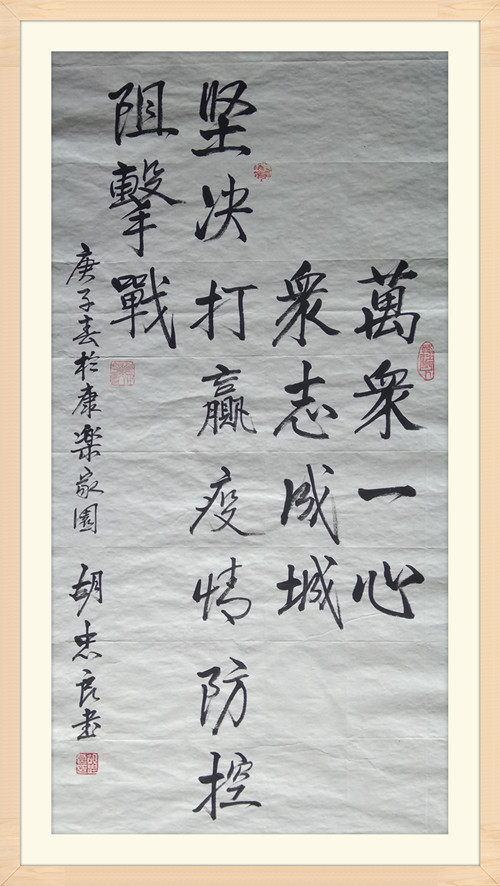 萬衆一心
衆志成城
坚决打赢疫情防控
阻擊戰
庚子春於康樂家園
胡忠良书